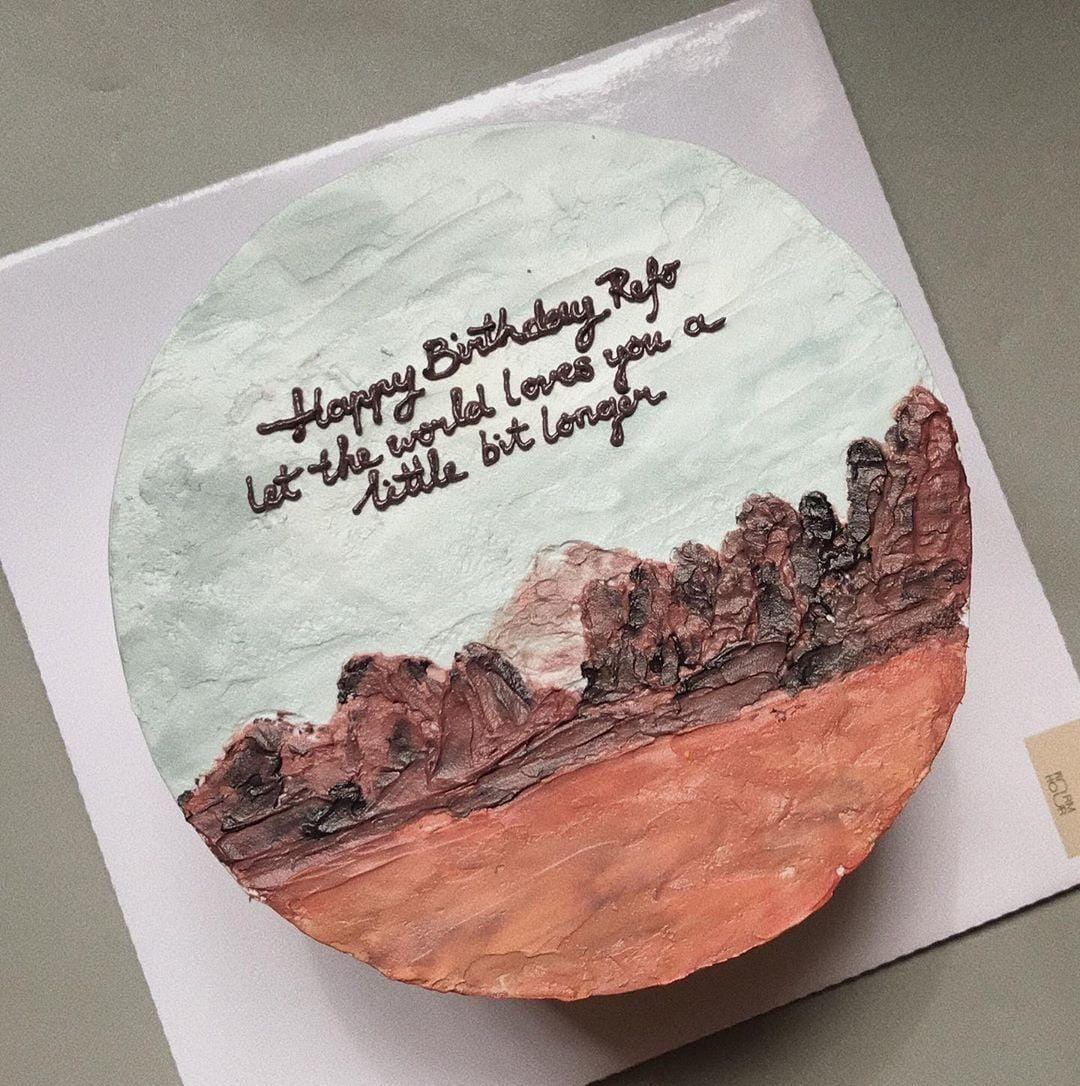 Happy Birthday Refo
let the world loves you a
little bit longer
HOUR